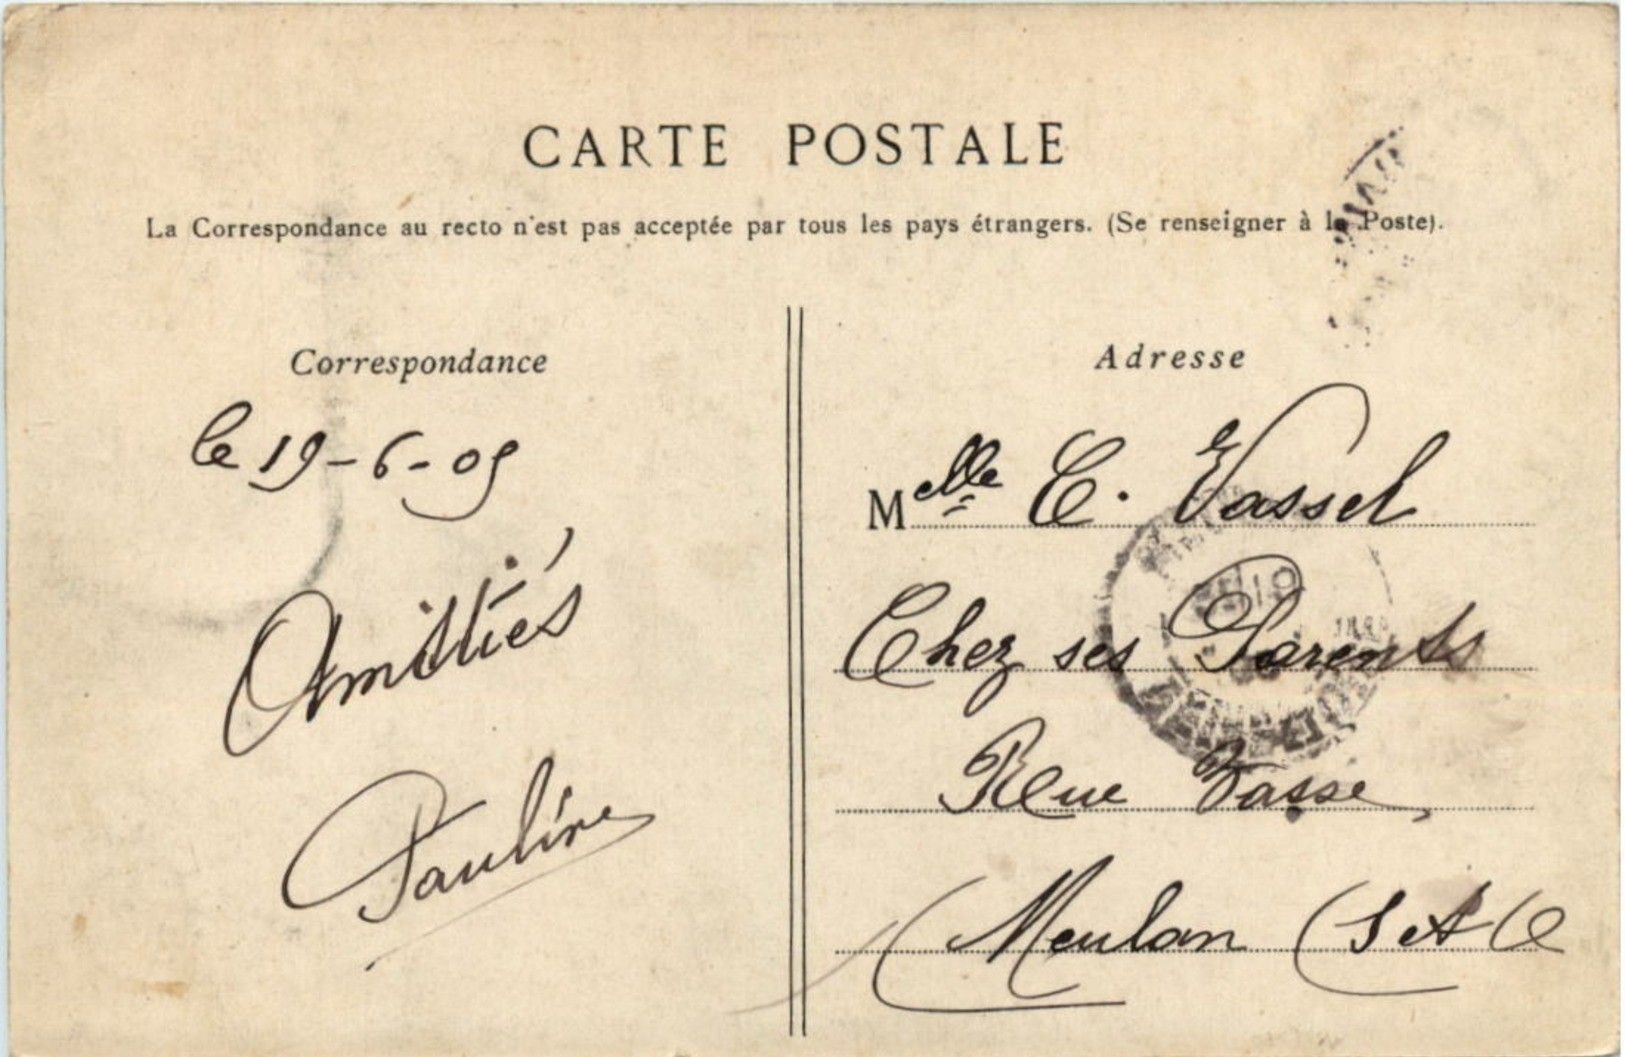 CARTE POSTALE
La Correspondance au recto n'est pas acceptée par tous les pays étrangers. (Se renseigner à la Poste).
Correspondance
le 19-6-09
Amitiés
Pauline
Adresse
Melle E. Vassel
Chez ses Parents
Rue Vasse,
Meulan (S et O